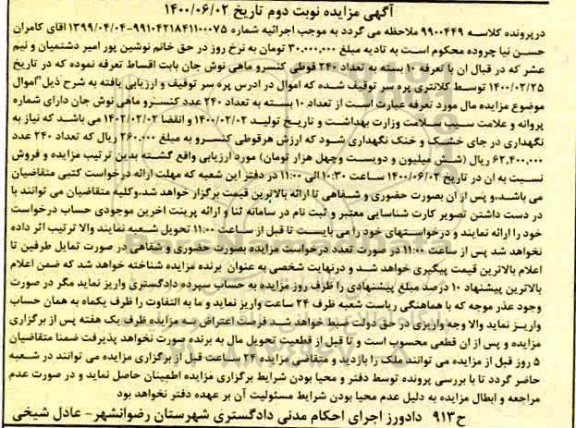 آگهی مزایده نوبت دوم تاریخ ۱۴۰۰/۰۶/۰۲
درپرونده کلاسه ۹۹۰۰۴۴۹ ملاحظه می گردد به موجب اجرائیه شماره ۹۹۱۰۴۲۱۸۴۱۱۰۰۰۷۵-۱۳۹۹/۰۴/۰۴ آقای کامران
حسن نیا چروده محکوم است به تادیه مبلغ ۳۰,۰۰۰,۰۰۰ تومان به نرخ روز در حق خانم نوشین پور امیر دشتمیان و نیم
عشر که در قبال ان با تعرفه ۱۰ بسته به تعداد ۲۴۰ قوطی کنسرو ماهی نوش جان بابت اقساط تعرفه نموده که در تاریخ
۱۴۰۰/۰۲/۲۵ توسط کلانتری پره سر توقیف شده که اموال در ادرس پره سر توقیف و ارزیابی یافته به شرح ذیل "اموال
موضوع مزایده مال مورد تعرفه عبارت است از تعداد ۱۰ بسته به تعداد ۲۴۰ عدد کنسرو ماهی نوش جان دارای شماره
پروانه و علامت سیب سلامت وزارت بهداشت و تاریخ تولید ۱۴۰۰/۰۲/۰۲ و انقضا ۱۴۰۲/۰۲/۰۲ می باشد که نیاز به
نگهداری در جای خشک و خنک نگهداری شود که ارزش هرقوطی کنسرو به مبلغ ۲۶۰,۰۰۰ ریال که تعداد ۲۴۰ عدد
۶۲,۴۰۰,۰۰۰ ریال (شش میلیون و دویست وچهل هزار تومان) مورد ارزیابی واقع گشته بدین ترتیب مزایده و فروش
نسبت به ان در تاریخ ۱۴۰۰/۰۶/۰۲ ساعت ۱۰:۳۰ الی ۱۱:۰۰ در دفتر این شعبه که مهلت ارائه درخواست کتبی متقاضیان
می باشد.و پس از ان بصورت حضوری و شفاهی تا ارائه بالاترین قیمت برگزار خواهد شد.وکلیه متقاضیان می توانند با
در دست داشتن تصویر کارت شناسایی معتبر و ثبت نام در سامانه ثنا و ارائه پرینت اخرین موجودی حساب درخواست
خود را ارائه نمایند و درخواستهای خود را می بایست تا قبل از ساعت ۱۱:۰۰ تحویل شعبه نمایند والا ترتیب اثر داده
نخواهد شد پس از ساعت ۱۱:۰۰ در صورت تعدد درخواست مزایده بصورت حضوری وشفاهی در صورت تمایل طرفین تا
اعلام بالاترین قیمت پیگیری خواهد شد و درنهایت شخصی به عنوان برنده مزایده شناخته خواهد شد که ضمن اعلام
بالاترین پیشنهاد ۱۰ درصد مبلغ پیشنهادی را ظرف روز مزایده به حساب سپرده دادگستری واریز نماید مگر در صورت
وجود عذر موجه که با هماهنگی ریاست شعبه ظرف ۲۴ ساعت واریز نماید و ما به التفاوت را ظرف یکماه به همان حساب
واریز نماید والا وجه واریزی در حق دولت ضبط خواهد شد فرصت اعتراض به مزایده ظرف یک هفته پس از برگزاری
مزایده و پس از ان قطعی محسوب است و تا قبل از قطعیت تحویل مال به برنده صورت نخواهد پذیرفت ضمنا متقاضیان
۵ روز قبل از مزایده می توانند ملک را بازدید و متقاضی مزایده ۲۴ ساعت قبل از برگزاری مزایده می توانند در شعبه
حاضر گردد تا با بررسی پرونده توسط دفتر و محیا بودن شرایط برگزاری مزایده اطمینان حاصل نماید و در صورت عدم
مراجعه و ابطال مزایده به دلیل عدم محیا بودن شرایط مسئولیت آن بر عهده دفتر نخواهد بود
ح۹۱۳ دادورز اجرای احکام مدنی دادگستری شهرستان رضوانشهر- عادل شیخی